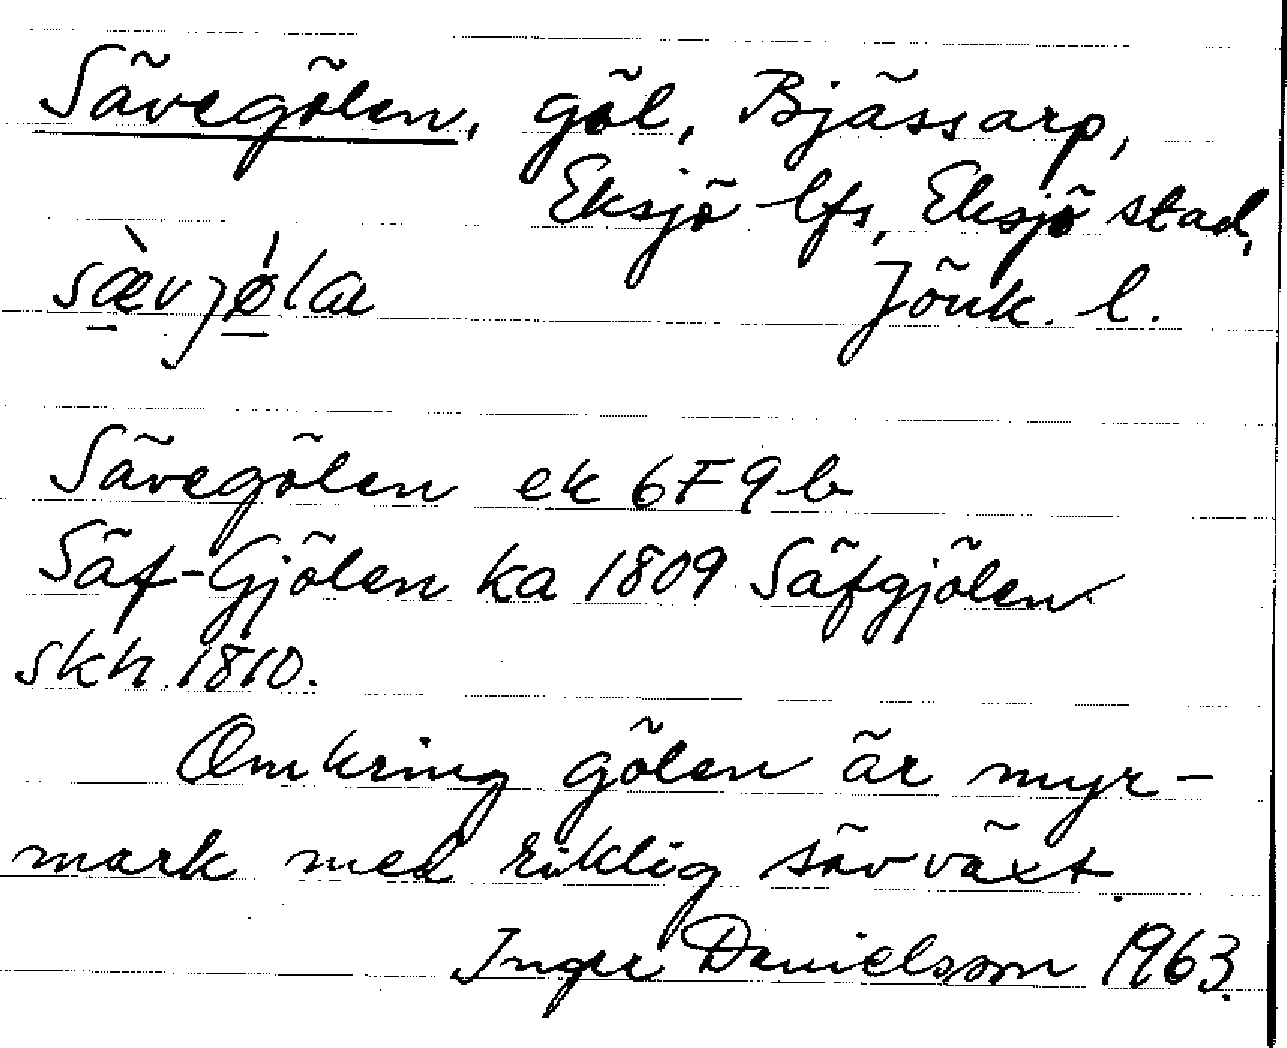 Sävegölen, göl, Bjässarp,
Eksjö lfs, Eksjö stad,
sæ̀vjǿlæ Jönk. l.
Sävegölen ek 6F9b
Säf-Gjölen ka 1809 Säfgjölen
skh 1810.
Omkring gölen är myr-
mark med riklig sävväxt.
Inger Danielsson 1963.